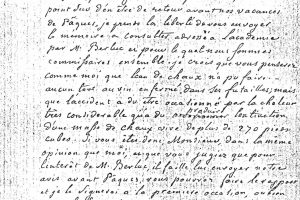 pour sur d'en être de retour avant nos vacances
de Pâques, je prends la liberté de vous envoyer
le mémoire à consulter adressé à l'académie
par M. Berluc et pour lequel nous sommes
commissaires ensemble. je crois que vous penserez
comme moi que l'eau de chaux n'a pu faire
aucun tort au vin enfermé dans les futailles; mais
que l'accident a du être occasionné par la chaleur
très considérable qu'a du produire l'extinction
d'une masse de chaux vive de plus de 270 pieds
cubes. Si vous êtes donc, Monsieur, dans la même
opinion que moi, et que vous jugiez que pour
l'intérêt de M. Berluc, il faille lui envoyer notre
avis avant Pâques, vous pouvez faire le rapport
et je le signerai à la première occasion, ou bien